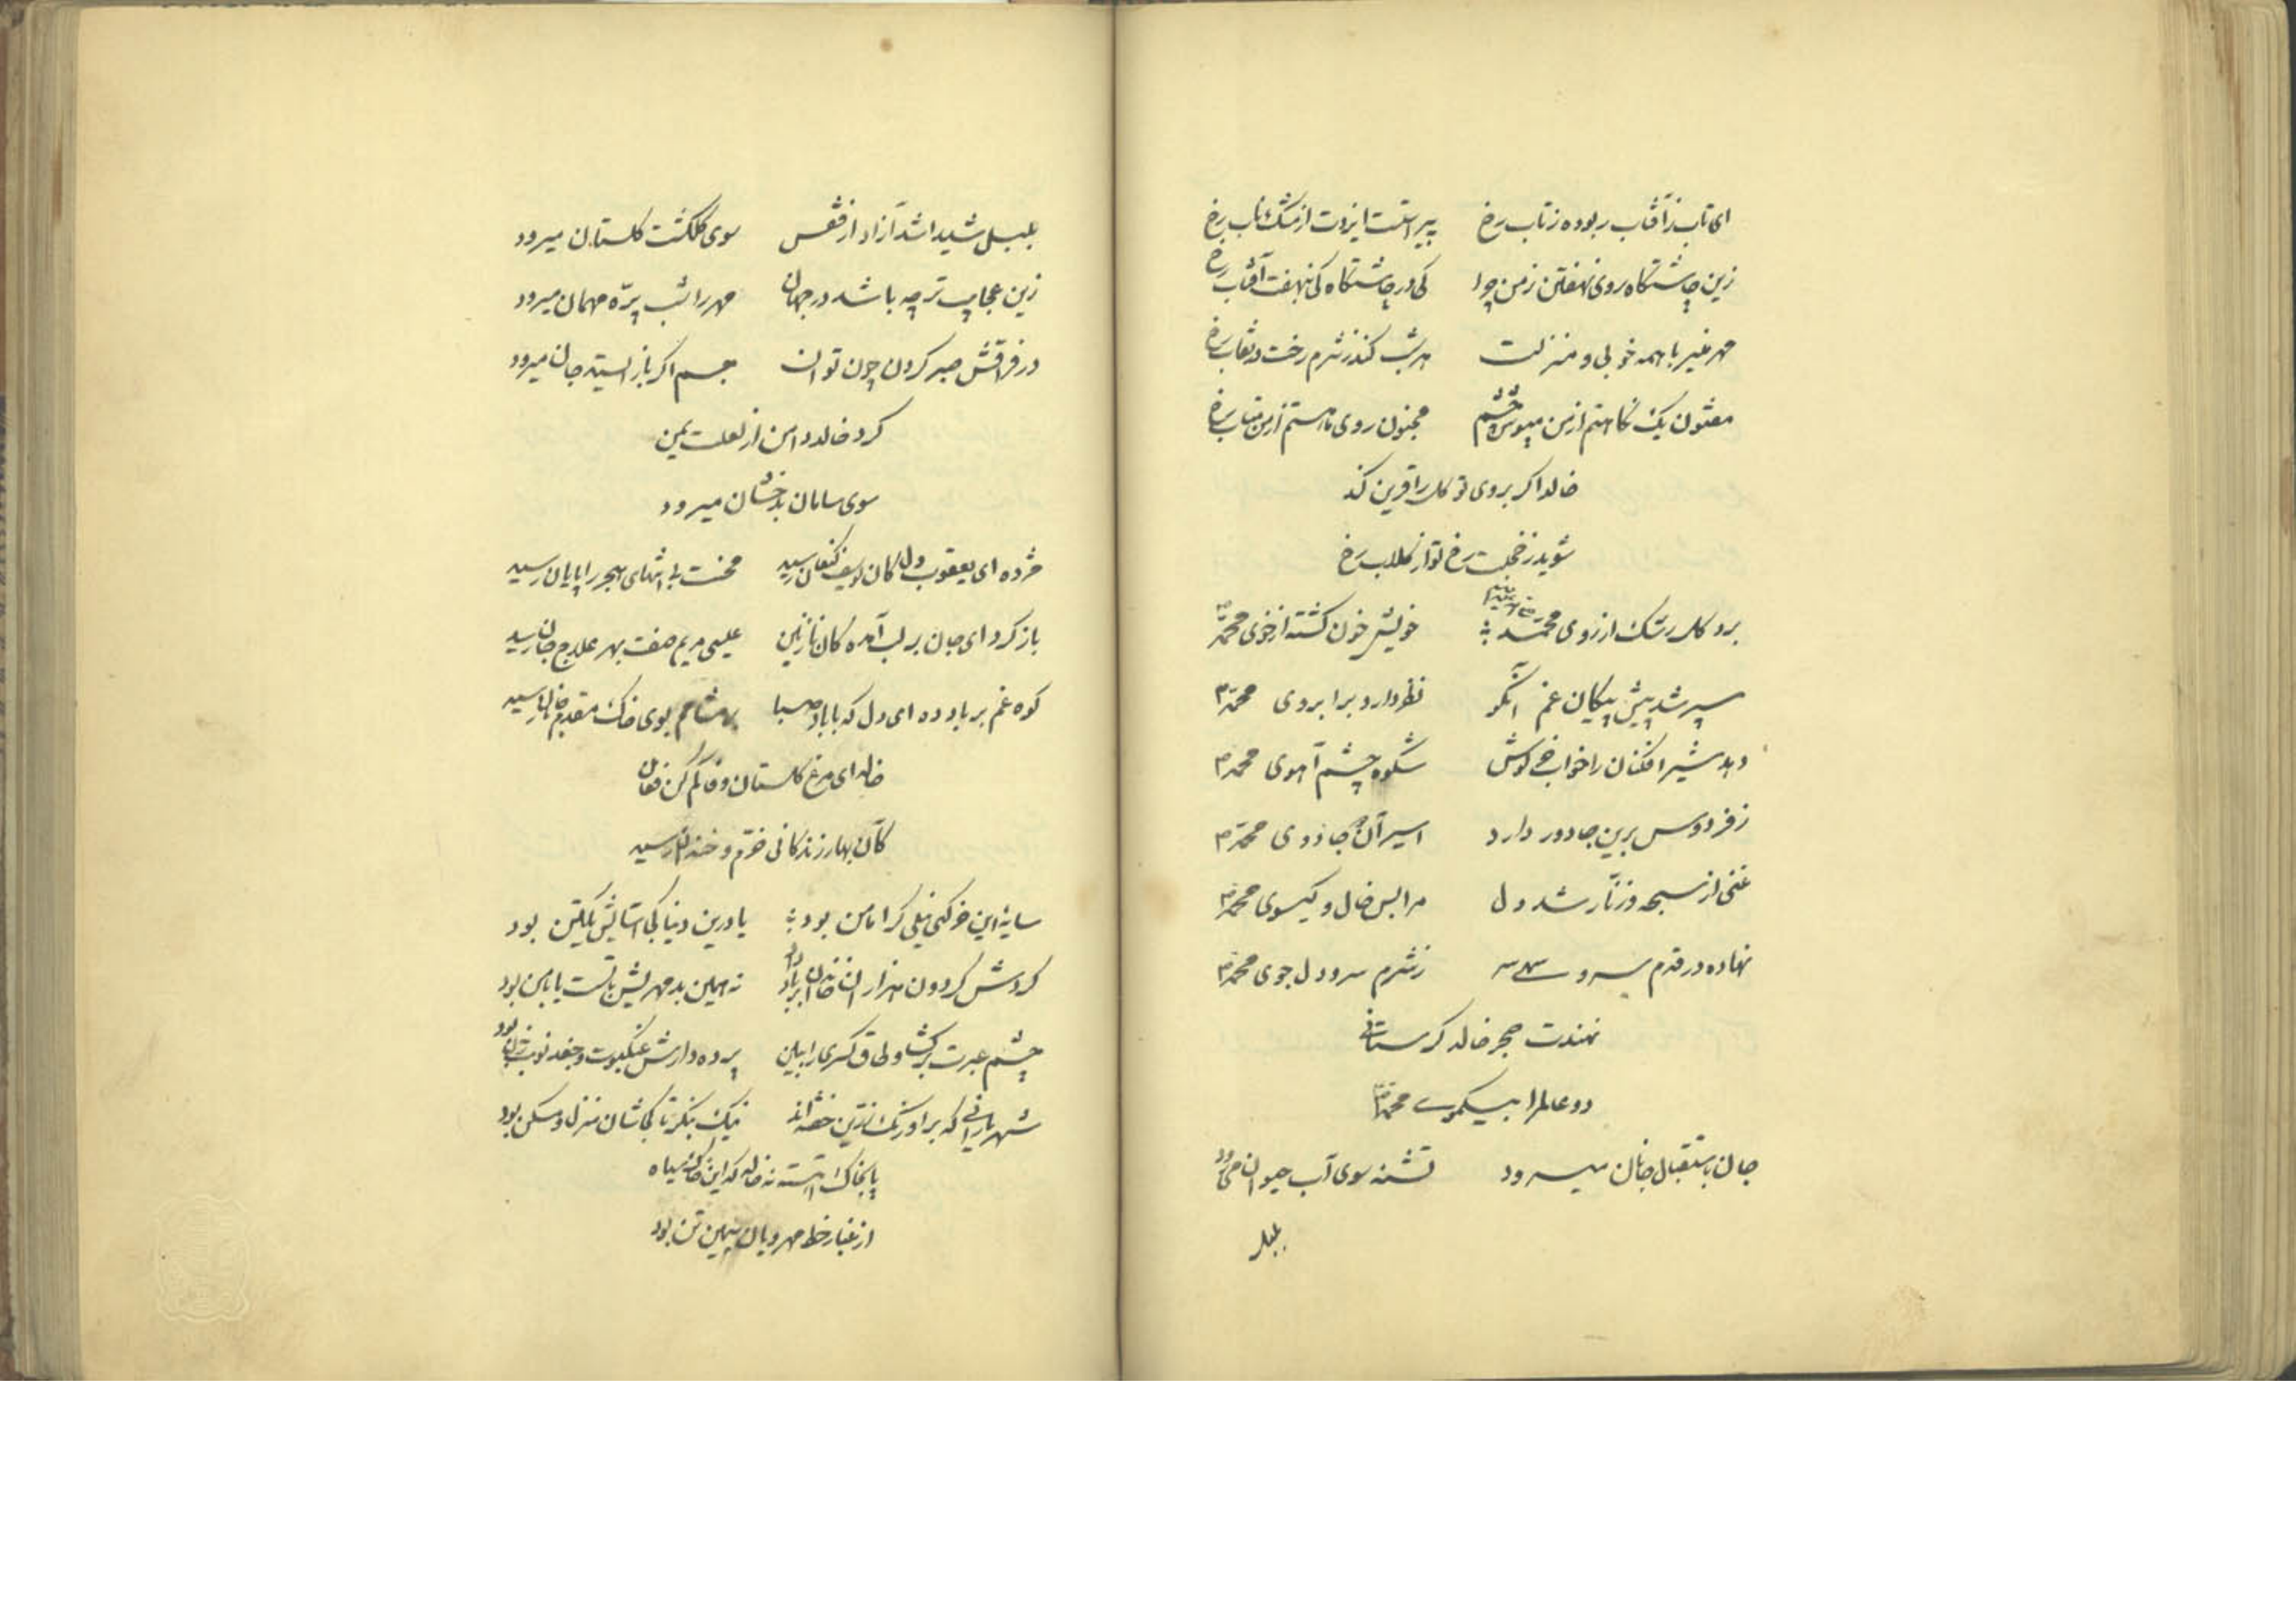 ای تاب ز آفتاب ربوده ز تاب رخ پیراست ایزدت از مشک ناب رخ
زین چاشتکاه روی نهفتن ز من چرا کی در چاشتکاه کی نهفت آفتاب رخ
مهر منیر با همه خوبی و منزلت هر شب کند ز شرم رخت در نقاب رخ
مفتون یک نکاهتم از من مپوش چشم مجنون روی ماهستم از من متاب رخ
خالد اکر بروی تو کل را قرین کند
شوید ز خجلت رخ تو از کلاب رخ
برد کل رشک از روی محمد خویش خون کشته از خوی محمد
سپر شد پیش پیکان غم آنکو نظر دارد بر ابروی محمد
دهد شیر افکنان را خواب خرکوش شکوه چشم آهوی محمد
ز فردوس برین جا دور دارد اسیر آن جادوی محمد
غنی از سبحه و زنار شد دل مرا بس خال و کیسوی محمد
نهاده در قدم سرو سهی سر ز شرم سرو دل جوی محمد
نهندت هجر خالد کر ستانی
دو عالم را بیکموی محمد
جان باستقبال جانان میرود تشنه سوی آب حیوان میرود
بلبل
بلبل شیدا شد آزاد از قفس سوی کلکشت کلستان میرود
زین عجایب تر چه باشد در جهان مهر را شب پره مهمان میرود
در فراقش صبر کردن چون توان جسم اکر باز ایستد جان میرود
کرد خالد دامن از لعلت یمن
سوی سامان بدخشان میرود
مژده ای یعقوب دل کان یوسف کنعان رسید محنت بی انتهای هجر را پایان رسید
باز کرد ای جان بر لب آمده کان نازنین عیسی مریم صفت بهر علاج جان رسید
کوه غم بر باد ده ای دل که با باد صبا بر مشامم بوی خاک مقدم جانان رسید
خالد ای مرغ کلستان وفا کم کن فغان
کآن بهار زندکانی خرم و خندان رسید
سایهٔ این خرکه نیلی کرا مامن بود یا درین دنیا کی آسایش یکتن بود
کردش کردون هزاران خاندان بر باد داد نه همین بد مهریش با تست یا با من بود
چشم عبرت برکشا و طاق کسری را ببین پرده دارش عنکبوت و جغد نوبت زن بود
شهریارانی که بر اورنک زرین خفته اند نیک بنکر تا کجاشان منزل و مسکن بود
پا بخاک آهسته نه خالد که این خاک سیاه
از غبار خط مهرویان سیمین تن بود